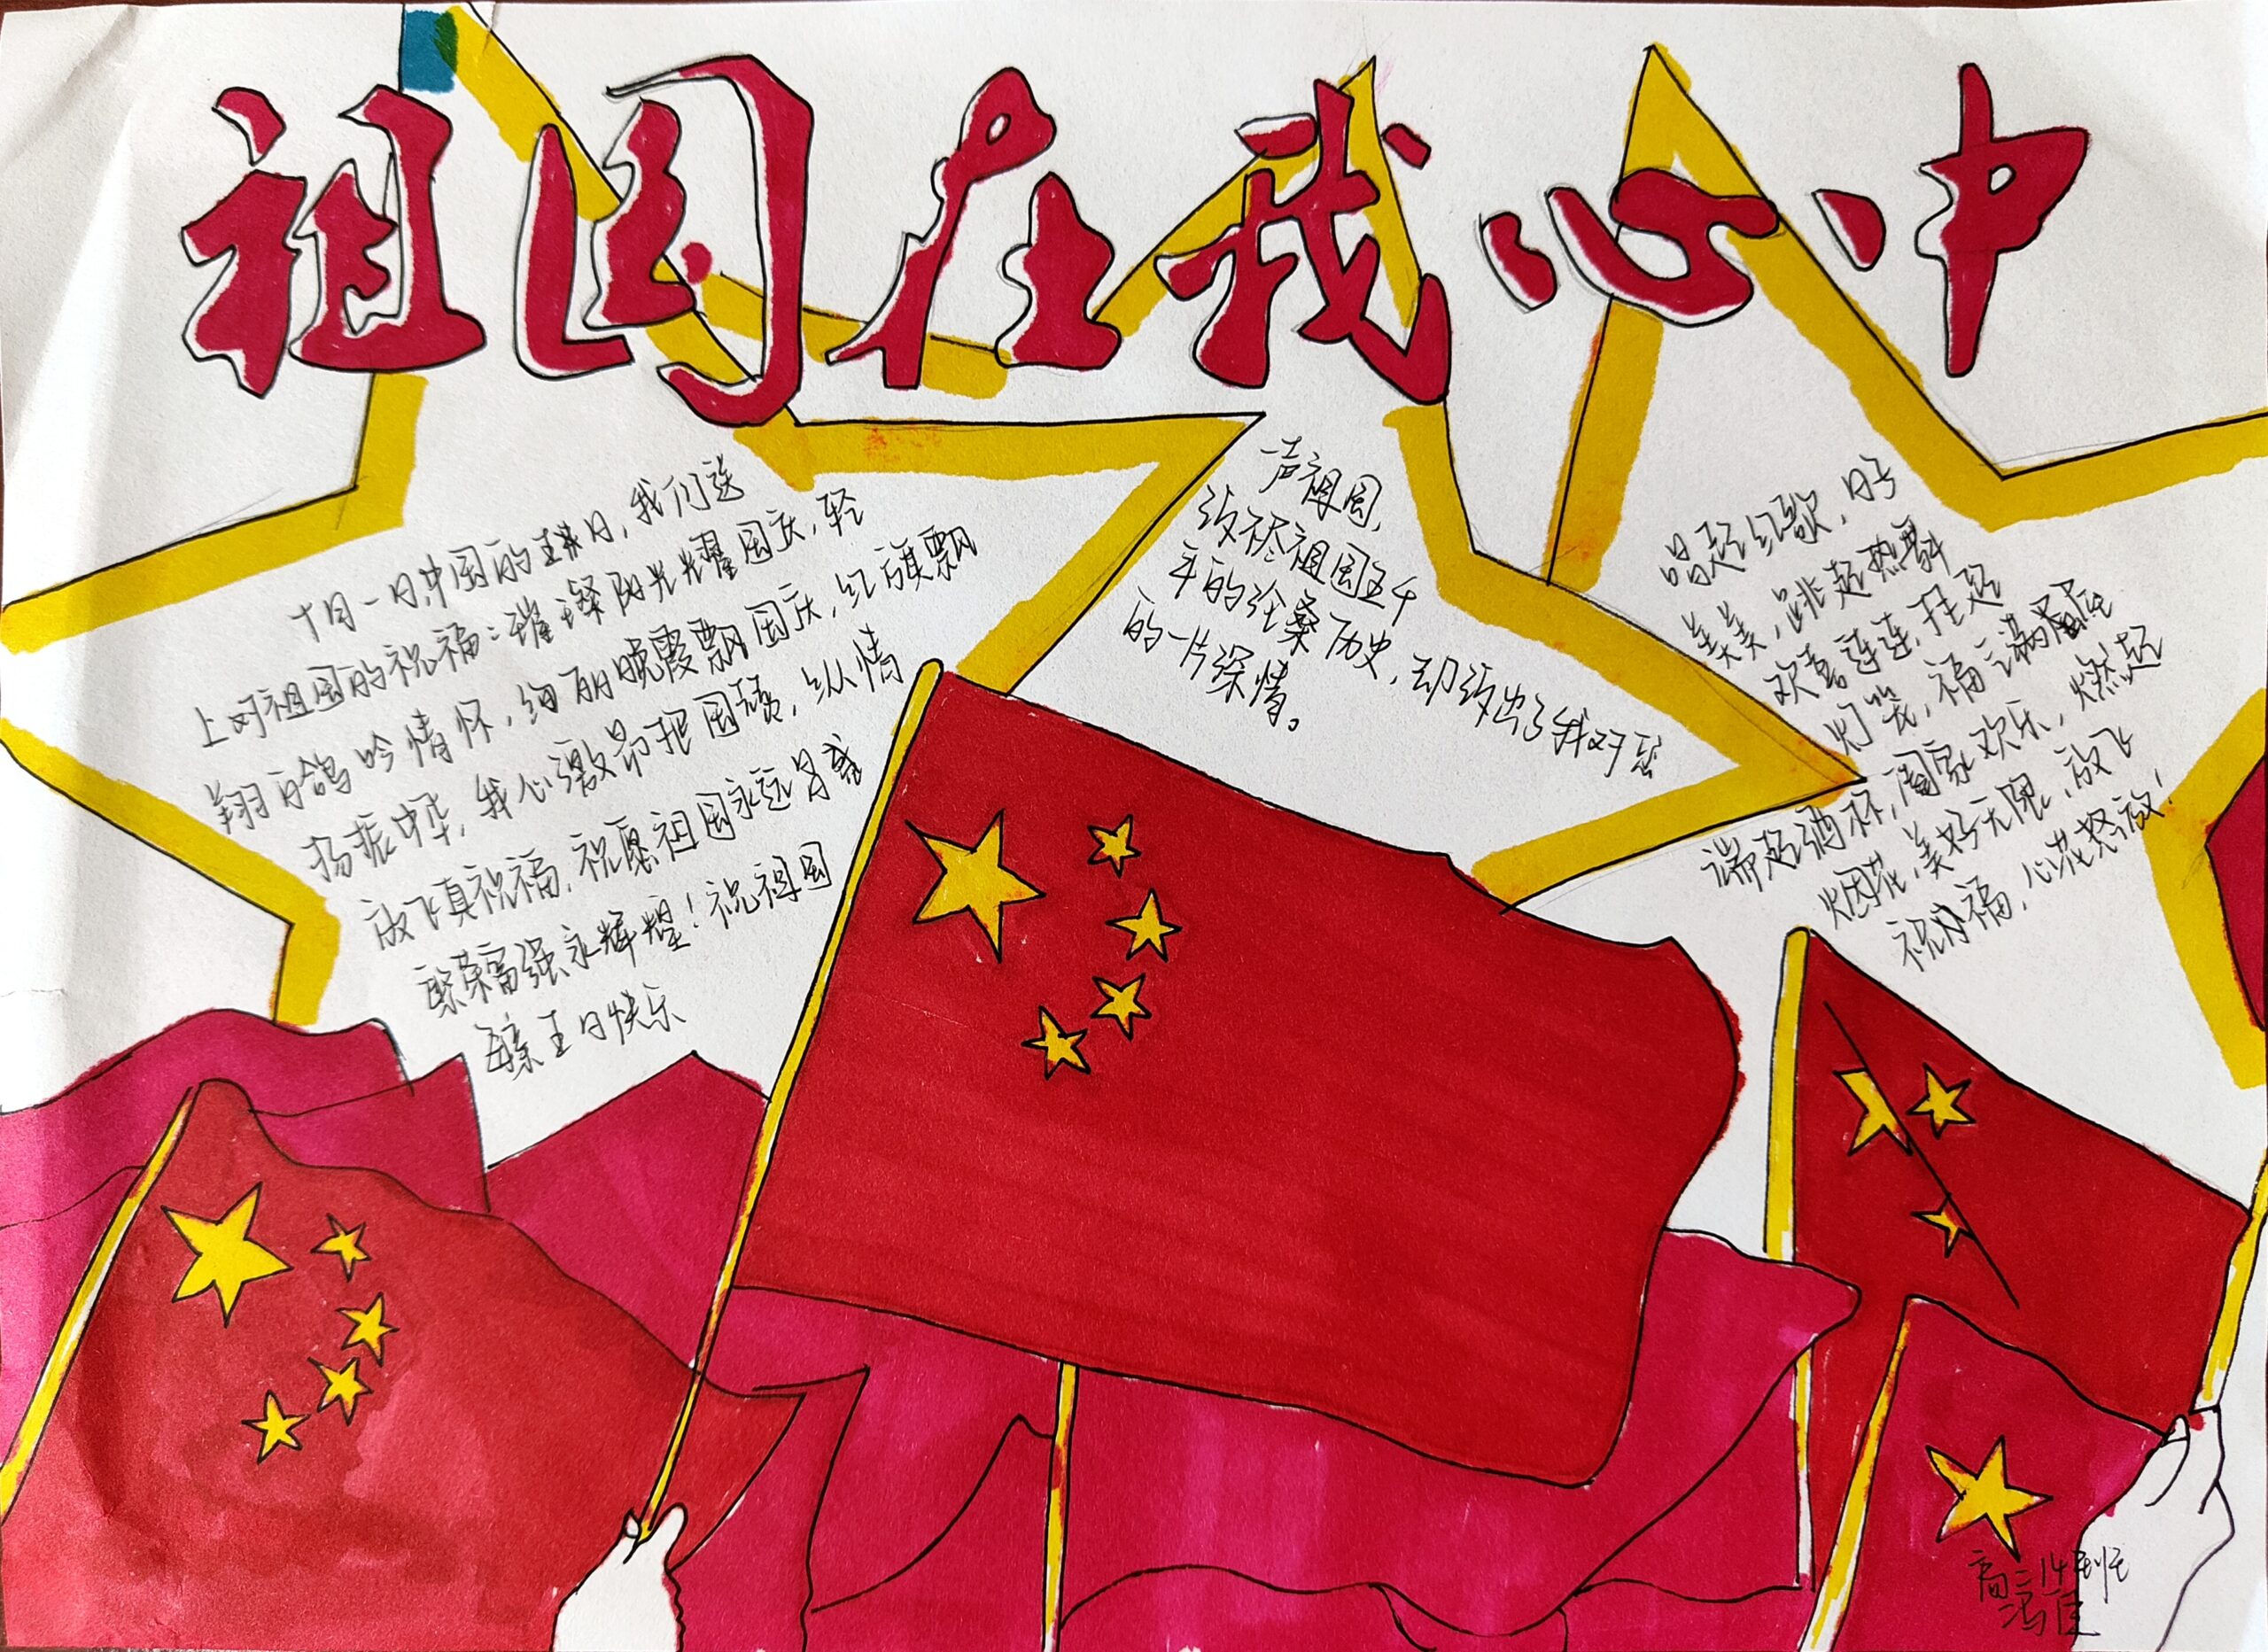 祖国在我心中
十月一日,中国的琪日,我们送
上对祖国的祝福:璀璨阳光耀国庆,轻
翔白鸽吟情怀,绚丽晚霞飘国庆,红旗飘
扬振中华,我心激昂把国颂,纵情
放飞真祝福,祝愿祖国永远昌盛
繁荣富强永辉煌!祝祖国
母亲生日快乐
一声祖国,
诉不尽祖国五千
年的沧桑历史,却诉出了我对您
的一片深情。
唱起红歌,日子
美美,跳起热舞
欢喜连连,挂起
灯笼,福满
端起酒杯,阖家欢乐,燃起
烟花,美好无限,放飞
祝福,心花怒放!
高二14班
冯